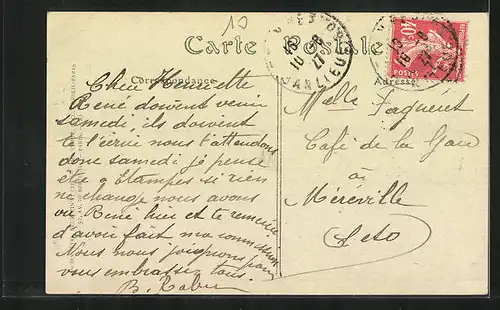 10
Carte Postale
Correspondance
Adresse
40c
POSTES
Chère Henriette
René doivent venir
samedi, ils doivent
te l'écrire nous l'attendons
donc samedi je pense
être a Etampes si rien
ne change nous avons
vu René hier et te remercie
d'avoir fait ma commission
Nous nous joignons pour
vous embrasser tous.
Melle
Café de la Gare
à
Méréville
S et O